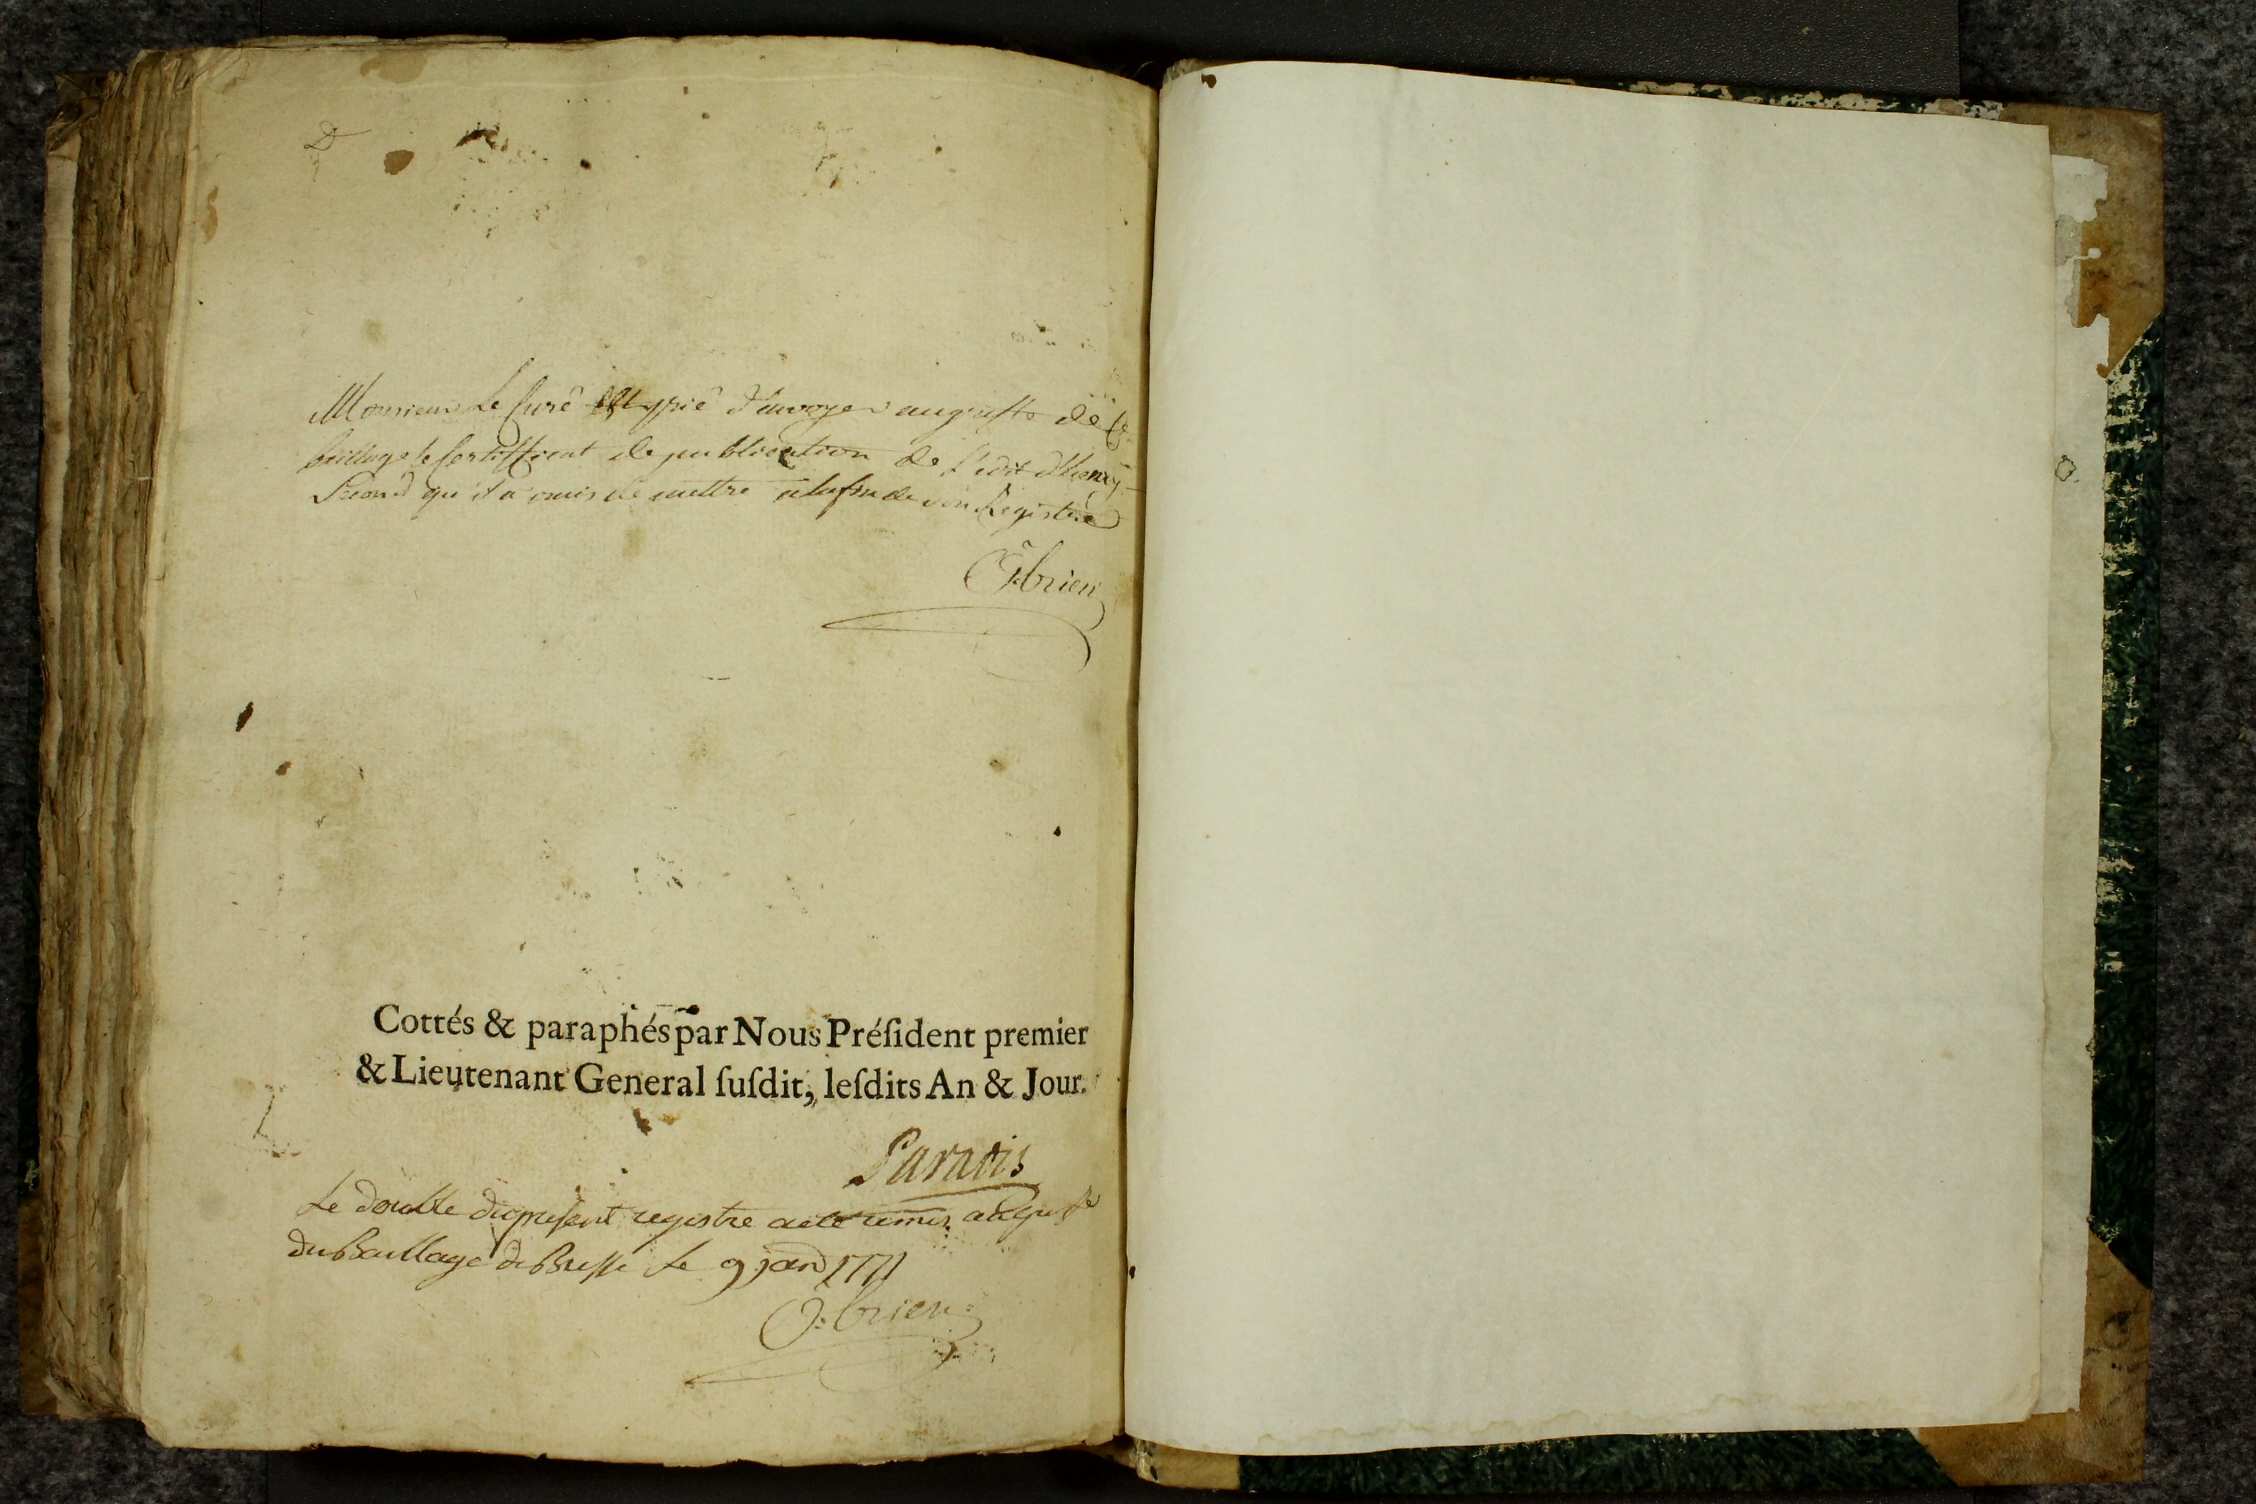 Monsieur Le Curé est prié d'envoyer au greffe de ce
bailliage le Certifficat de publication de L'edit d'henry
Second qu'il a omis de mettre a la fin de son Registre
O:brien
Cottés & paraphés par Nous Préſident premier
& Lieutenant General ſuſdit, leſdits An & Jour.
Paradis
Le double du present registre a eté remis au greffe
du baillage de Bresse Le 9 janv 1771
O:brien